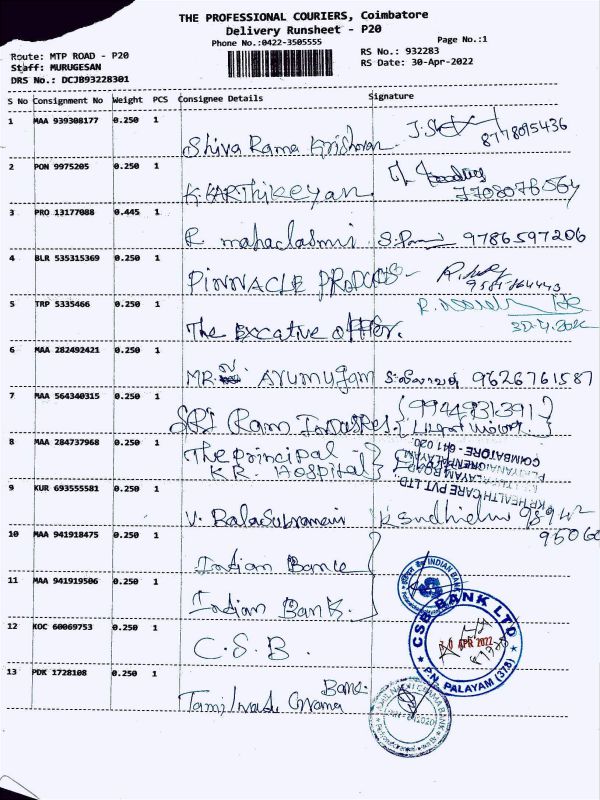 THE PROFESSIONAL COURIERS, Coimbatore
Delivery Runsheet - P20
Phone No.:0422-3505555
Page No.:1
Route: MTP ROAD - P20
Staff: MURUGESAN
DRS No.: DCJB93228301
RS No.: 932283
RS Date: 30-Apr-2022
S No Consignment No Weight PCS Consignee Details Signature
1 MAA 939308177 0.250 1 Shiva Rama Krishnan
2 PON 9975205 0.250 1 K.KARThikeyan 7708078564
3 PRO 13177088 0.445 1 R mahaclasmi 9786597206
4 BLR 535315369 0.250 1 PINNACLE PRODUCTS
5 TRP 5335466 0.250 1 The Excative offer.
6 MAA 282492421 0.250 1 MR. Arumugam 9626761587
7 MAA 564340315 0.250 1 SRI Ram 9944931391
8 MAA 284737968 0.250 1 The principal
KR. Hospital
KR HEALTH CARE PVT. LTD
COIMBATORE - 641 020.
9 KUR 693555581 0.250 1 V. Balasubramani
10 MAA 941918475 0.250 1 Indian Bank
11 MAA 941919506 0.250 1 Indian Bank.
INDIAN BANK
12 KOC 60069753 0.250 1 C.S.B.
CSB BANK LTD
APR 2022
P.N. PALAYAM (378)
13 PDK 1728108 0.250 1 Tamilnadu Grama Bank.